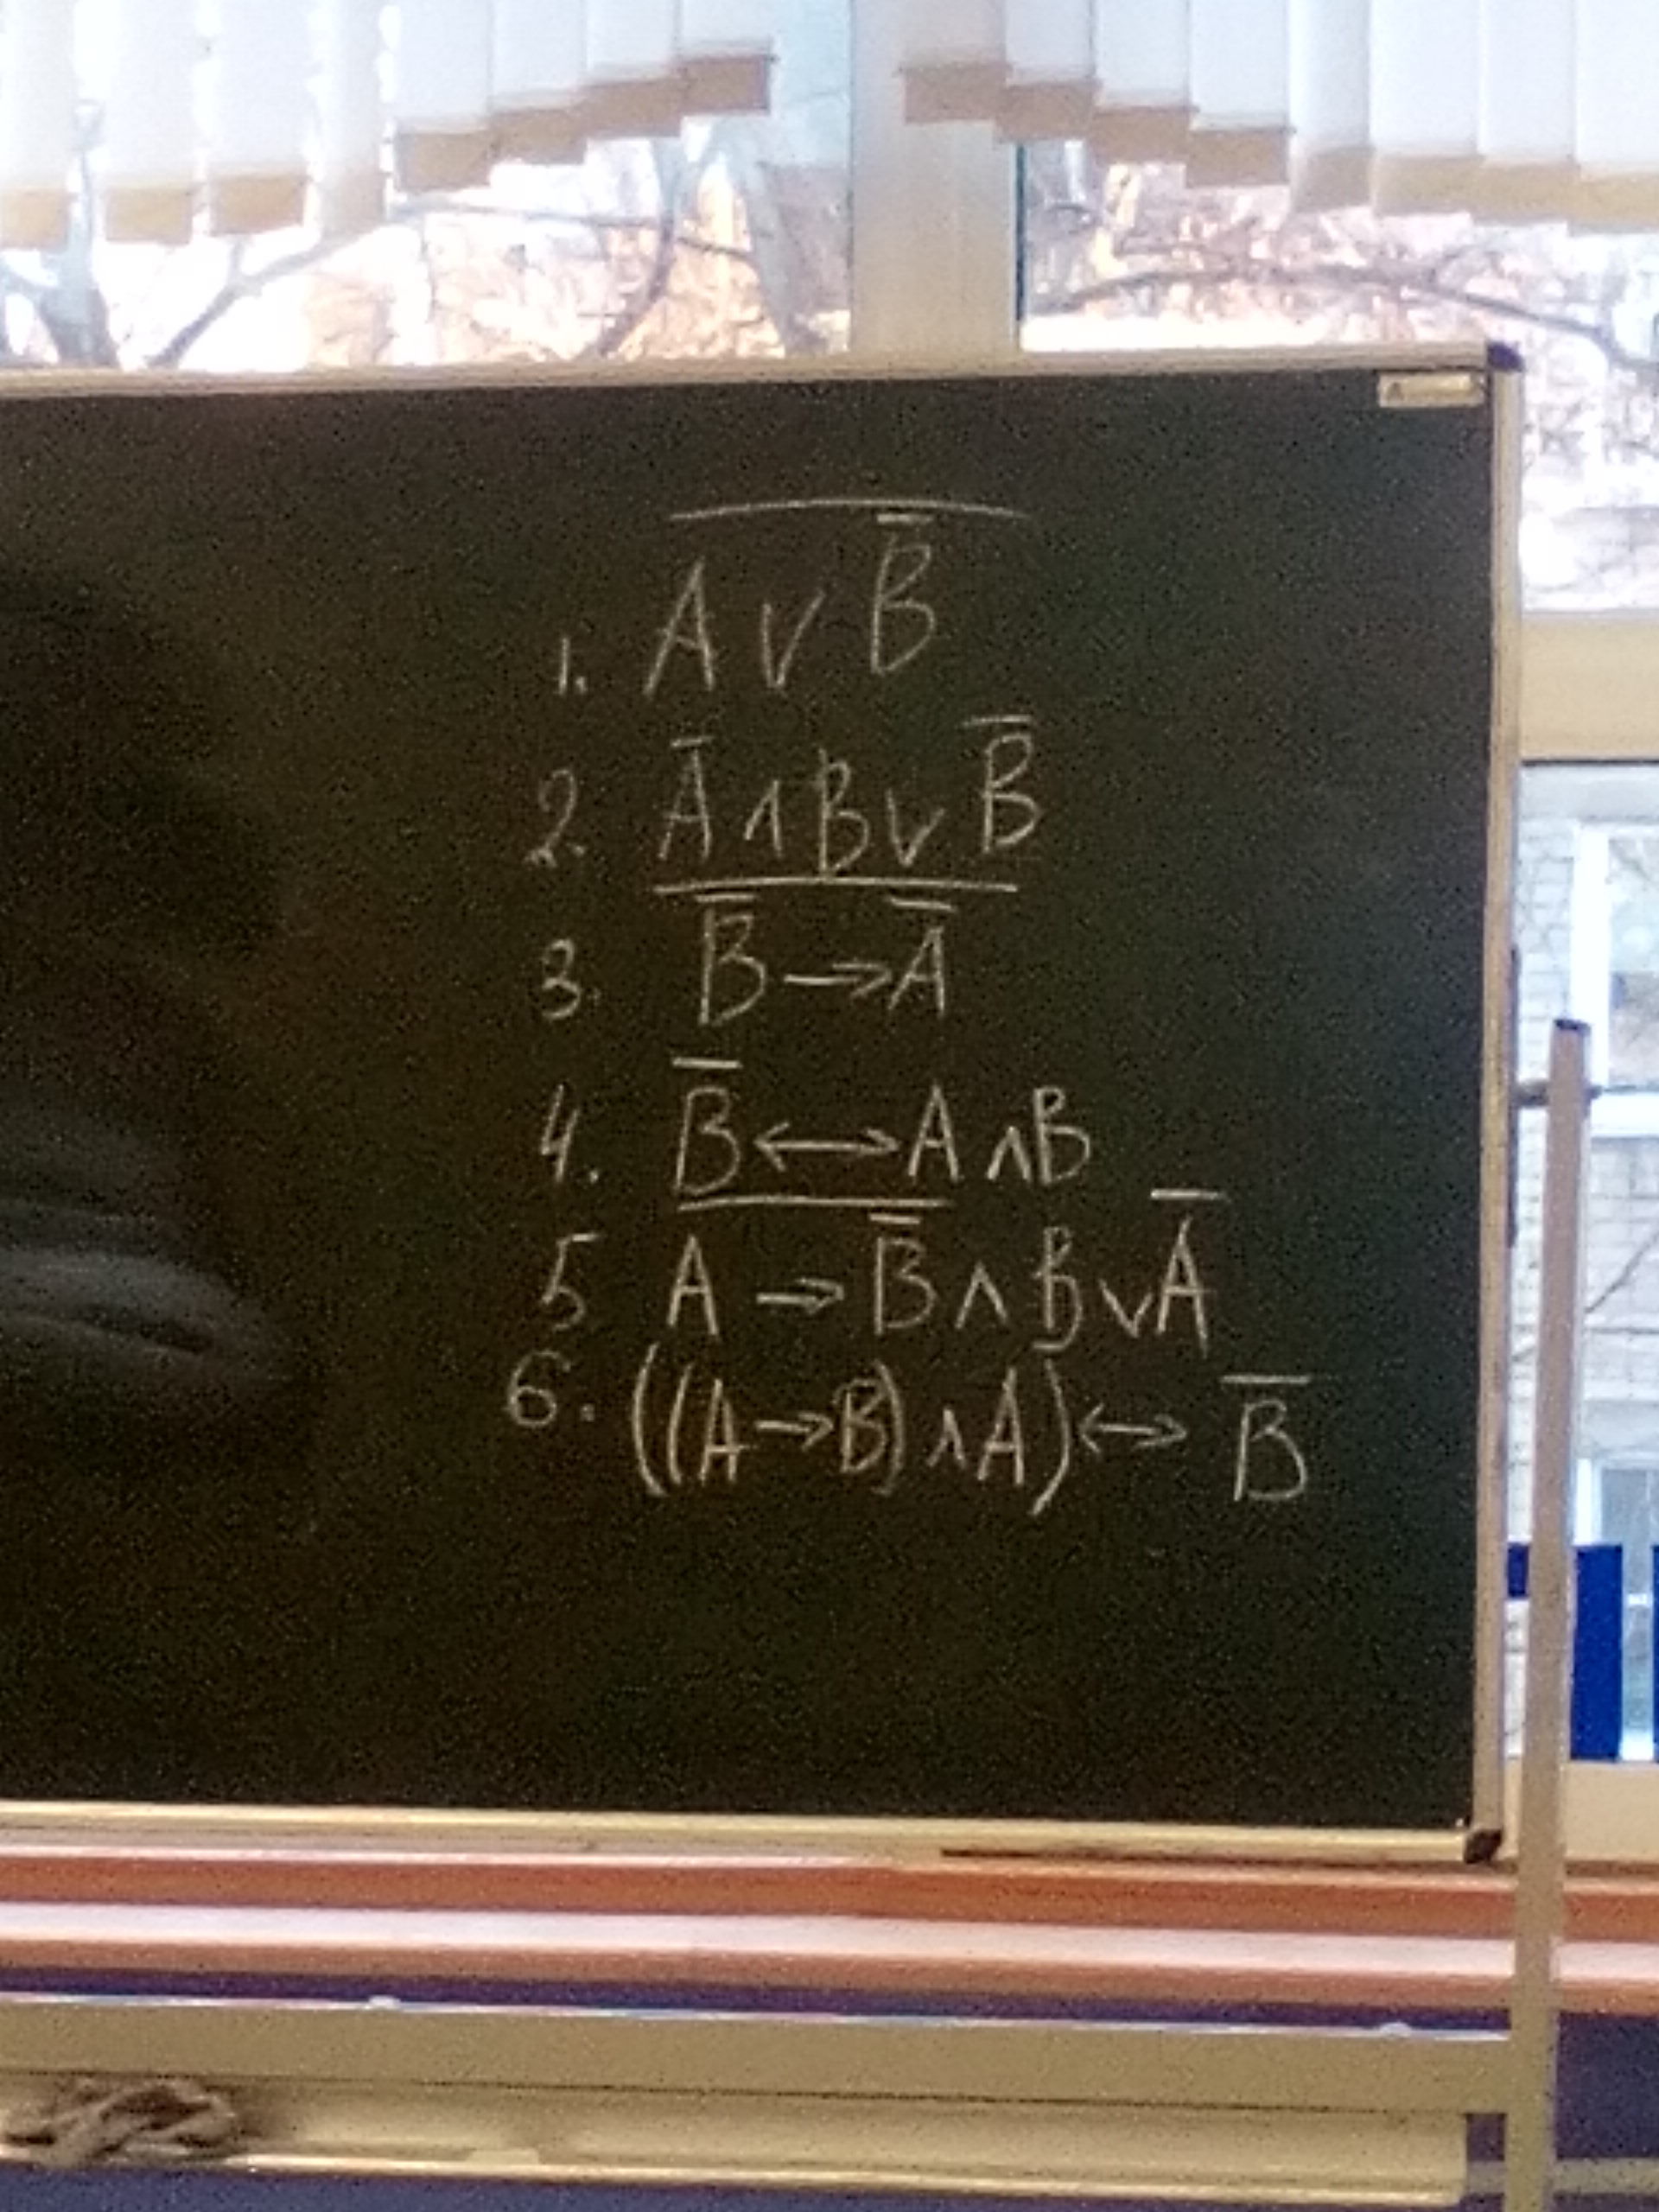 1. $\overline{A \vee \overline{B}}$
2. $\overline{A} \wedge B \vee \overline{B}$
3. $\overline{\overline{B} \rightarrow \overline{A}}$
4. $\overline{B} \leftrightarrow A \wedge B$
5 $\overline{A \rightarrow \overline{B}} \wedge B \vee \overline{A}$
6. $((A \rightarrow B) \wedge A) \leftrightarrow \overline{B}$